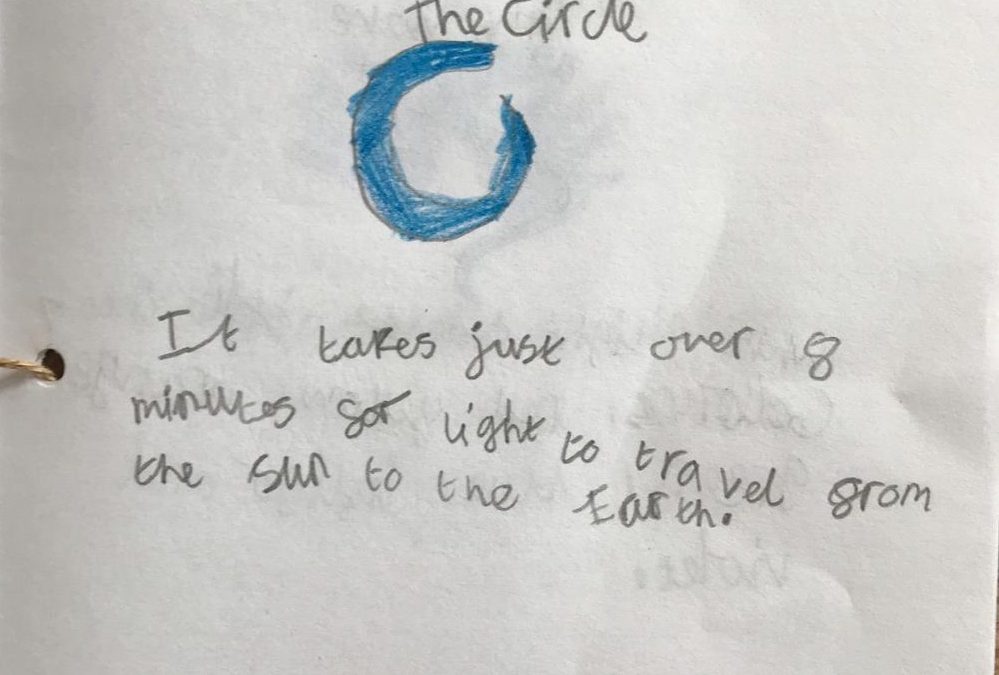 The Circle
It takes just over 8
minutes for light to travel from
the sun to the Earth.